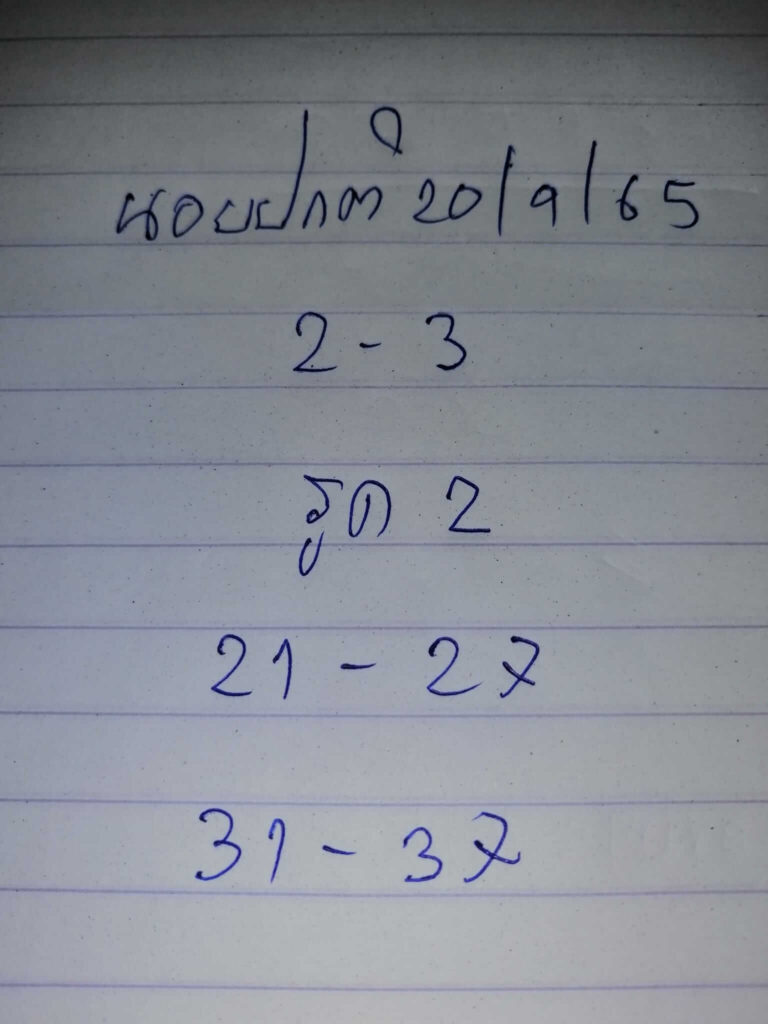 นอยปกติ 20/9/65
2 - 3
รูด 2
21 - 27
31 - 37